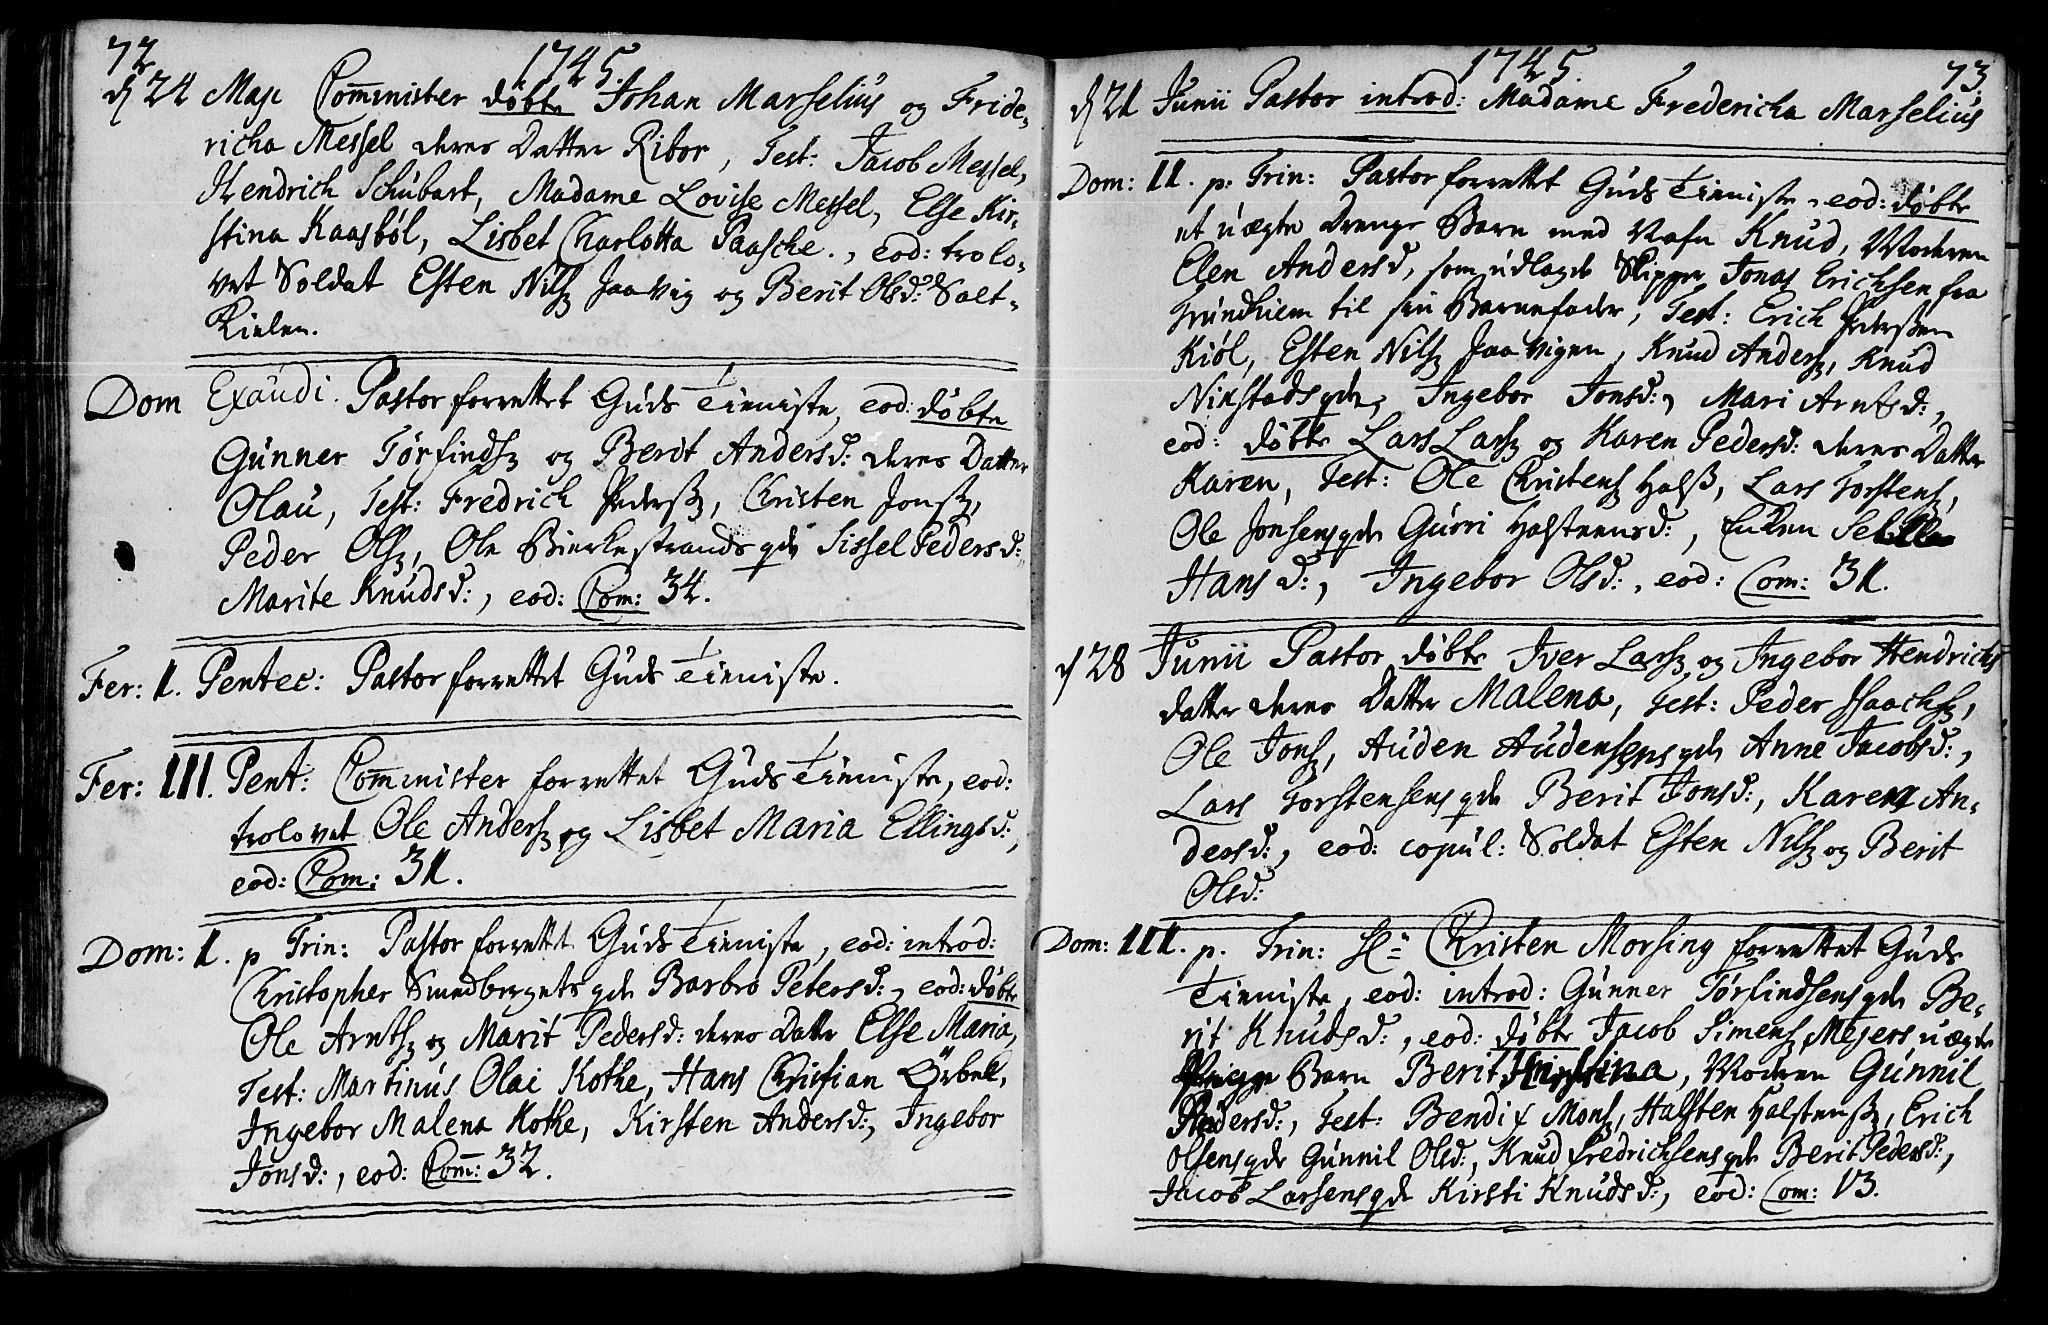 72.
1745.
d 24 Maji Comminister døbte Johan Marselius og Fride-
richa Messel deres Datter Ribor, Test: Jacob Messel,
Hendrich Schubart, Madame Lovise Messel, Else Kir-
stina Kaasbøl, Lisbet Charlotta Paasche., eod: trolo-
vet Soldat Esten Nilss Jaavig og Berit Olsd: Salt-
Kielen.
Dom Exaudi. Pastor forrettet Guds Tieniste, eod: døbte
Gunner Torfindss og Berit Andersd: deres Datter
Olau, Test: Fredrich Pederss, Christen Jonss,
Peder Olss, Ole Bierkestrands qde Sissel Pedersd:
Marite Knudsd:, eod: Com: 34.
Fer: I. Pentec: Pastor forrettet Guds Tieniste.
Fer: III. Pent: Comminister forrettet Guds Tieniste, eod:
trolovet Ole Anderss og Lisbet Maria Ellingsd:,
eod: Com: 31.
Dom: I. p Trin: Pastor forrettet Guds Tieniste, eod: introd:
Christopher Smedbergets qde Barbro Petersd:, eod: døbte
Ole Arntss og Marit Pedersd: deres Datter Else Maria,
Test: Martinus Olai Kothe, Hans Christian Ørbek,
Ingebor Malena Kothe, Kirsten Andersd:, Ingebor
Jonsd:, eod: Com: 32.
1745.
73.
d 21 Junii Pastor introd: Madame Fredericha Marselius
Dom: II. p: Trin: Pastor forrettet Guds Tieniste, eod: døbte
et uægte Drenge Barn med Nafn Knud, Moderen
Elen Andersd, som udlagde Skipper Jonas Erichsen fra
Trundhiem til sin Barnefader, Test: Erich Pederssen
Kiøl, Esten Nilss Jaavigen, Knud Anderss, Knud
Nixstads qde, Ingebor Jonsd:, Mari Arntsd:,
eod: døbte Lars Larss og Karen Pedersd: deres Datter
Karen, Test: Ole Christenss Halss, Lars Torstenss,
Ole Jonsens qde Gurri Halsteensd:, Enken
Hansd:, Ingebor Olsd:, eod: Com: 31.
d 28 Junii Pastor døbte Iver Larss og Ingebor Hendrichs
datter deres Datter Malena, Test: Peder Isaachss,
Ole Jonss, Auden Audensens qde Anne Jacobsd:,
Lars Torstensens qde Berit Jonsd:, Karen An-
dersd:, eod: copul: Soldat Esten Nilss og Berit
Olsd:
Dom: III. p. Trin: Hr Christen Morsing forrettet Guds
Tieniste, eod: introd: Gunner Torfindsens qde Be-
rit Knudsd:, eod: døbte Jacob Simenss Mejers uægte
Barn Berit Kirstina, Moderen Gunnil
Pedersd:, Test: Bendix Monss, Halsten Halstenss, Erich
Olsens qde Gunnil Olsd:, Knud Fredrichsens qde Berit Pedersd:,
Jacob Larsens qde Kirsti Knudsd:, eod: Com: 13.